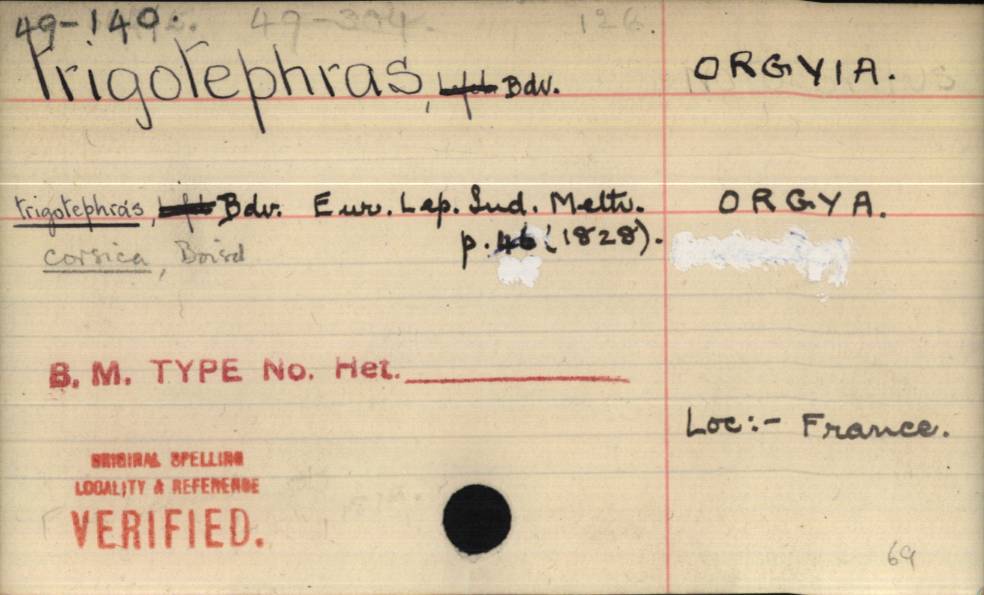 49-140. 49-304. 126.
trigotephras, Bdv. ORGYIA.
trigotephras, Bdv. Eur. Lep. Ind. Meth. ORGYA.
p. 46 (1828).
corsica, Boisd
B. M. TYPE No. Het.
Loc:- France.
ORIGINAL SPELLING
LOCALITY & REFERENCE
VERIFIED.
69